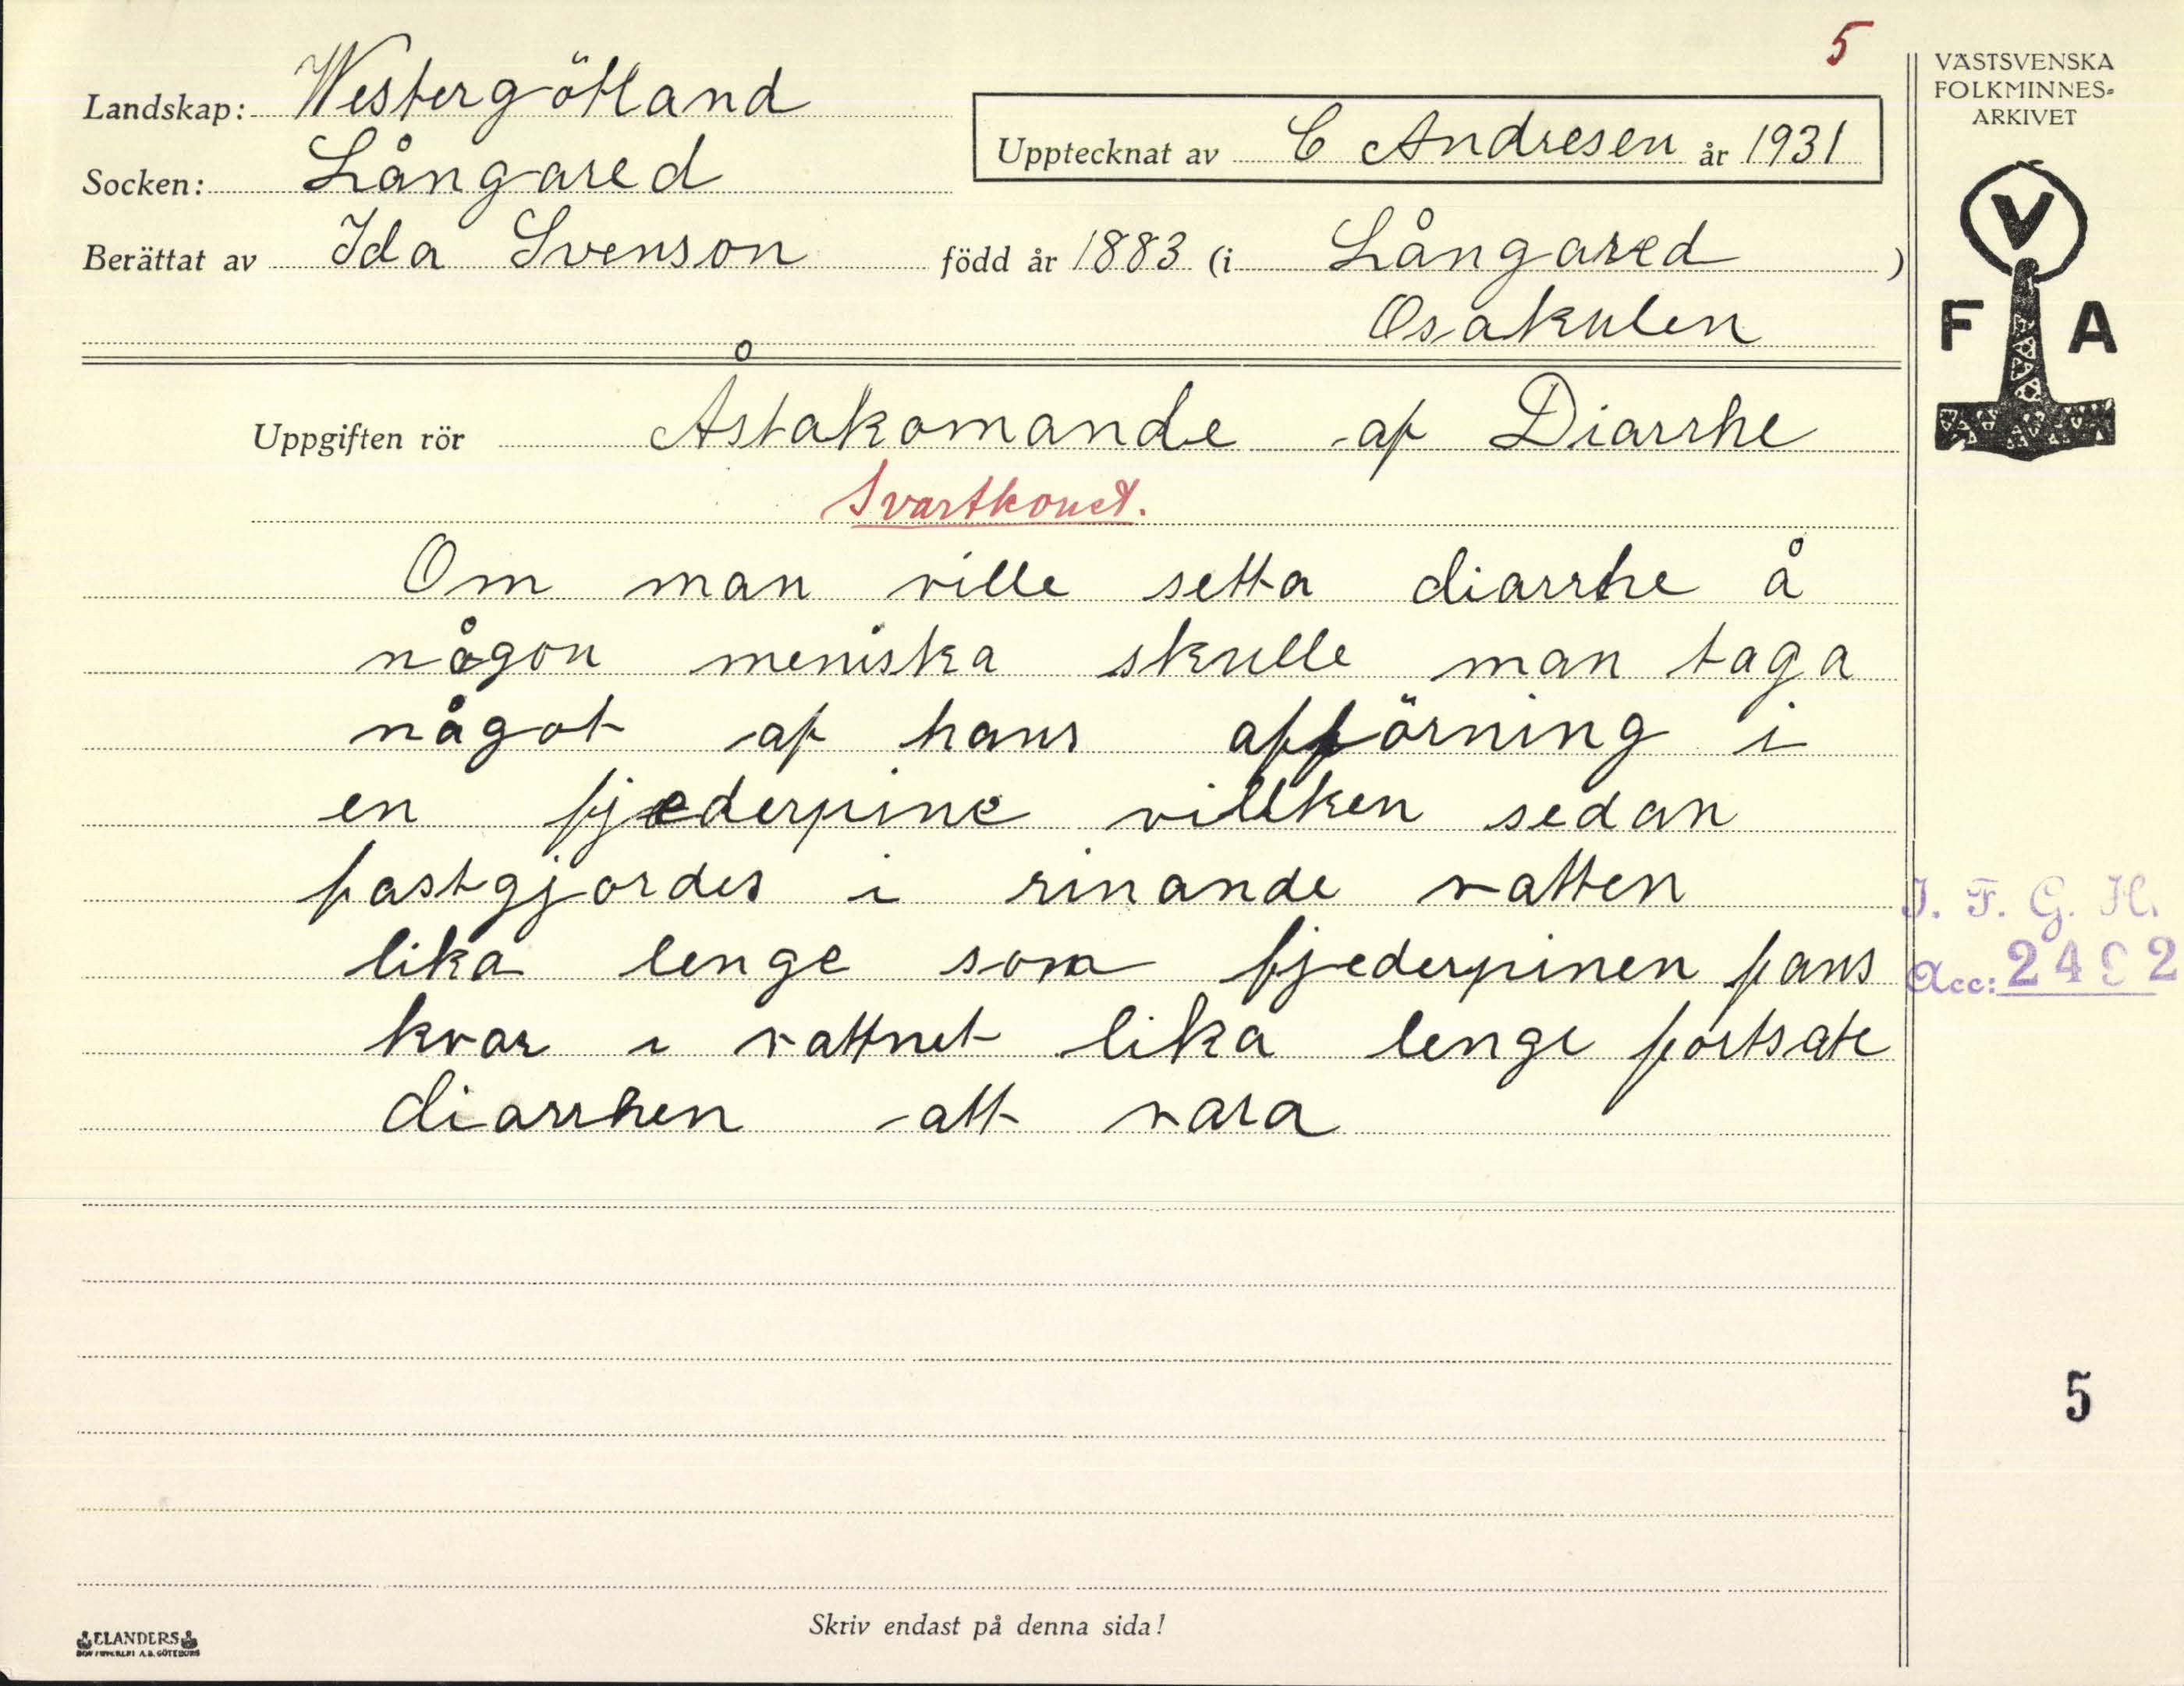 5
Landskap: Westergötland
Socken: Långared
Upptecknat av C Andresen år 1931
Berättat av Ida Svenson född år 1883 (i Långared )
Osakulen
Uppgiften rör Åstakomande af Diarrhe
Svartkonst.
Om man ville setta diarrhe å
någon meniska skulle man taga
något af hans afförning i
en fjederpine villken sedan
fastgjordes i rinande vatten
lika lenge som fjederpinen fans
kvar i vattnet lika lenge fortsate
diarrhen att vara
Skriv endast på denna sida!
ELANDERS
VÄSTSVENSKA
FOLKMINNES-
ARKIVET
V
F A
I. F. G. H.
Acc: 2492
5